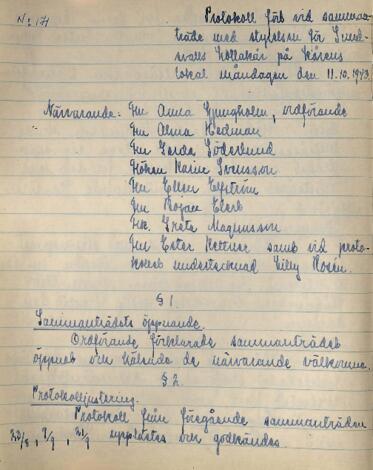 No: 171
Protokoll förb vid samman-
träde med styrelsen för Sund-
svalls Lottakår på Kårens
lokal måndagen den 11.10.1943.
Närvarande: Fru Anna Ljungholm, ordförande
Fru Alma Hedman
Fru Gerda Söderlund
Fröken Karin Svensson
Fru Ellen Elfström
Fru Ekerb
Frk. Greta Magnusson
Fru Ester Kettner samt vid proto-
kollet undertecknad Lilly Rosén.
§ 1.
Sammanträdets öppnande.
Ordförande förklarade sammanträdet
öppnat och hälsade de närvarande välkomna.
§ 2.
Protokolljustering.
Protokoll från föregående sammanträden
23/8, 7/9, 21/9 upplästes och godkändes.